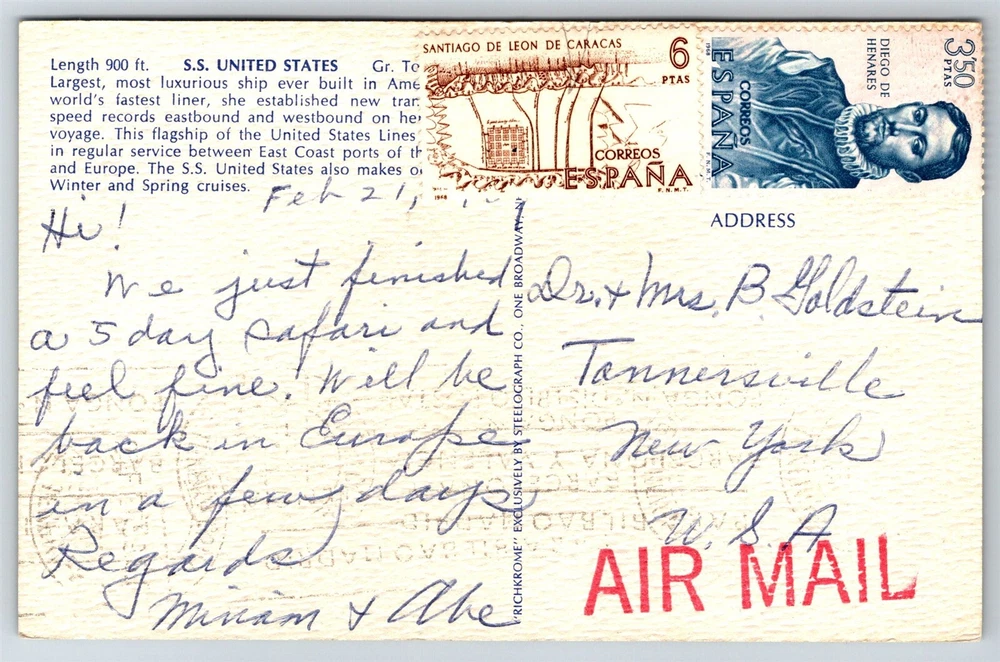 Length 900 ft. S.S. UNITED STATES Gr. To
Largest, most luxurious ship ever built in Ame
world's fastest liner, she established new tran
speed records eastbound and westbound on her
voyage. This flagship of the United States Lines
in regular service between East Coast ports of th
and Europe. The S.S. United States also makes
Winter and Spring cruises.
SANTIAGO DE LEON DE CARACAS 6
PTAS
CORREOS
ESPAÑA
F.N.M.T.
1968
DIEGO DE
HENARES
3'50
PTAS
1968
CORREOS
ESPAÑA
F.N.M.T.
ADDRESS
Feb 21,
Hi!
We just finished
a 5 day safari and
feel fine. Will be
back in Europe
in a few days
Regards
Miriam & Abe
"RICHKROME" EXCLUSIVELY BY STEELOGRAPH CO., ONE BROADWAY, N
Dr. & Mrs. B Goldstein
Tannersville
New York
U.S.A
AIR MAIL